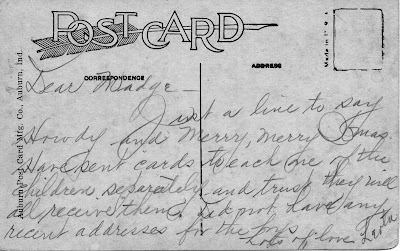 POST CARD
CORRESPONDENCE
ADDRESS
Made in U.S.A.
Auburn Post Card Mfg. Co., Auburn, Ind.
Dear Madge -
Just a line to say
Howdy and Merry, Merry Xmas.
Have sent cards to each one of the
children separately and trust they will
all receive them. Did not have any
recent addresses for the boys.
Lots of love